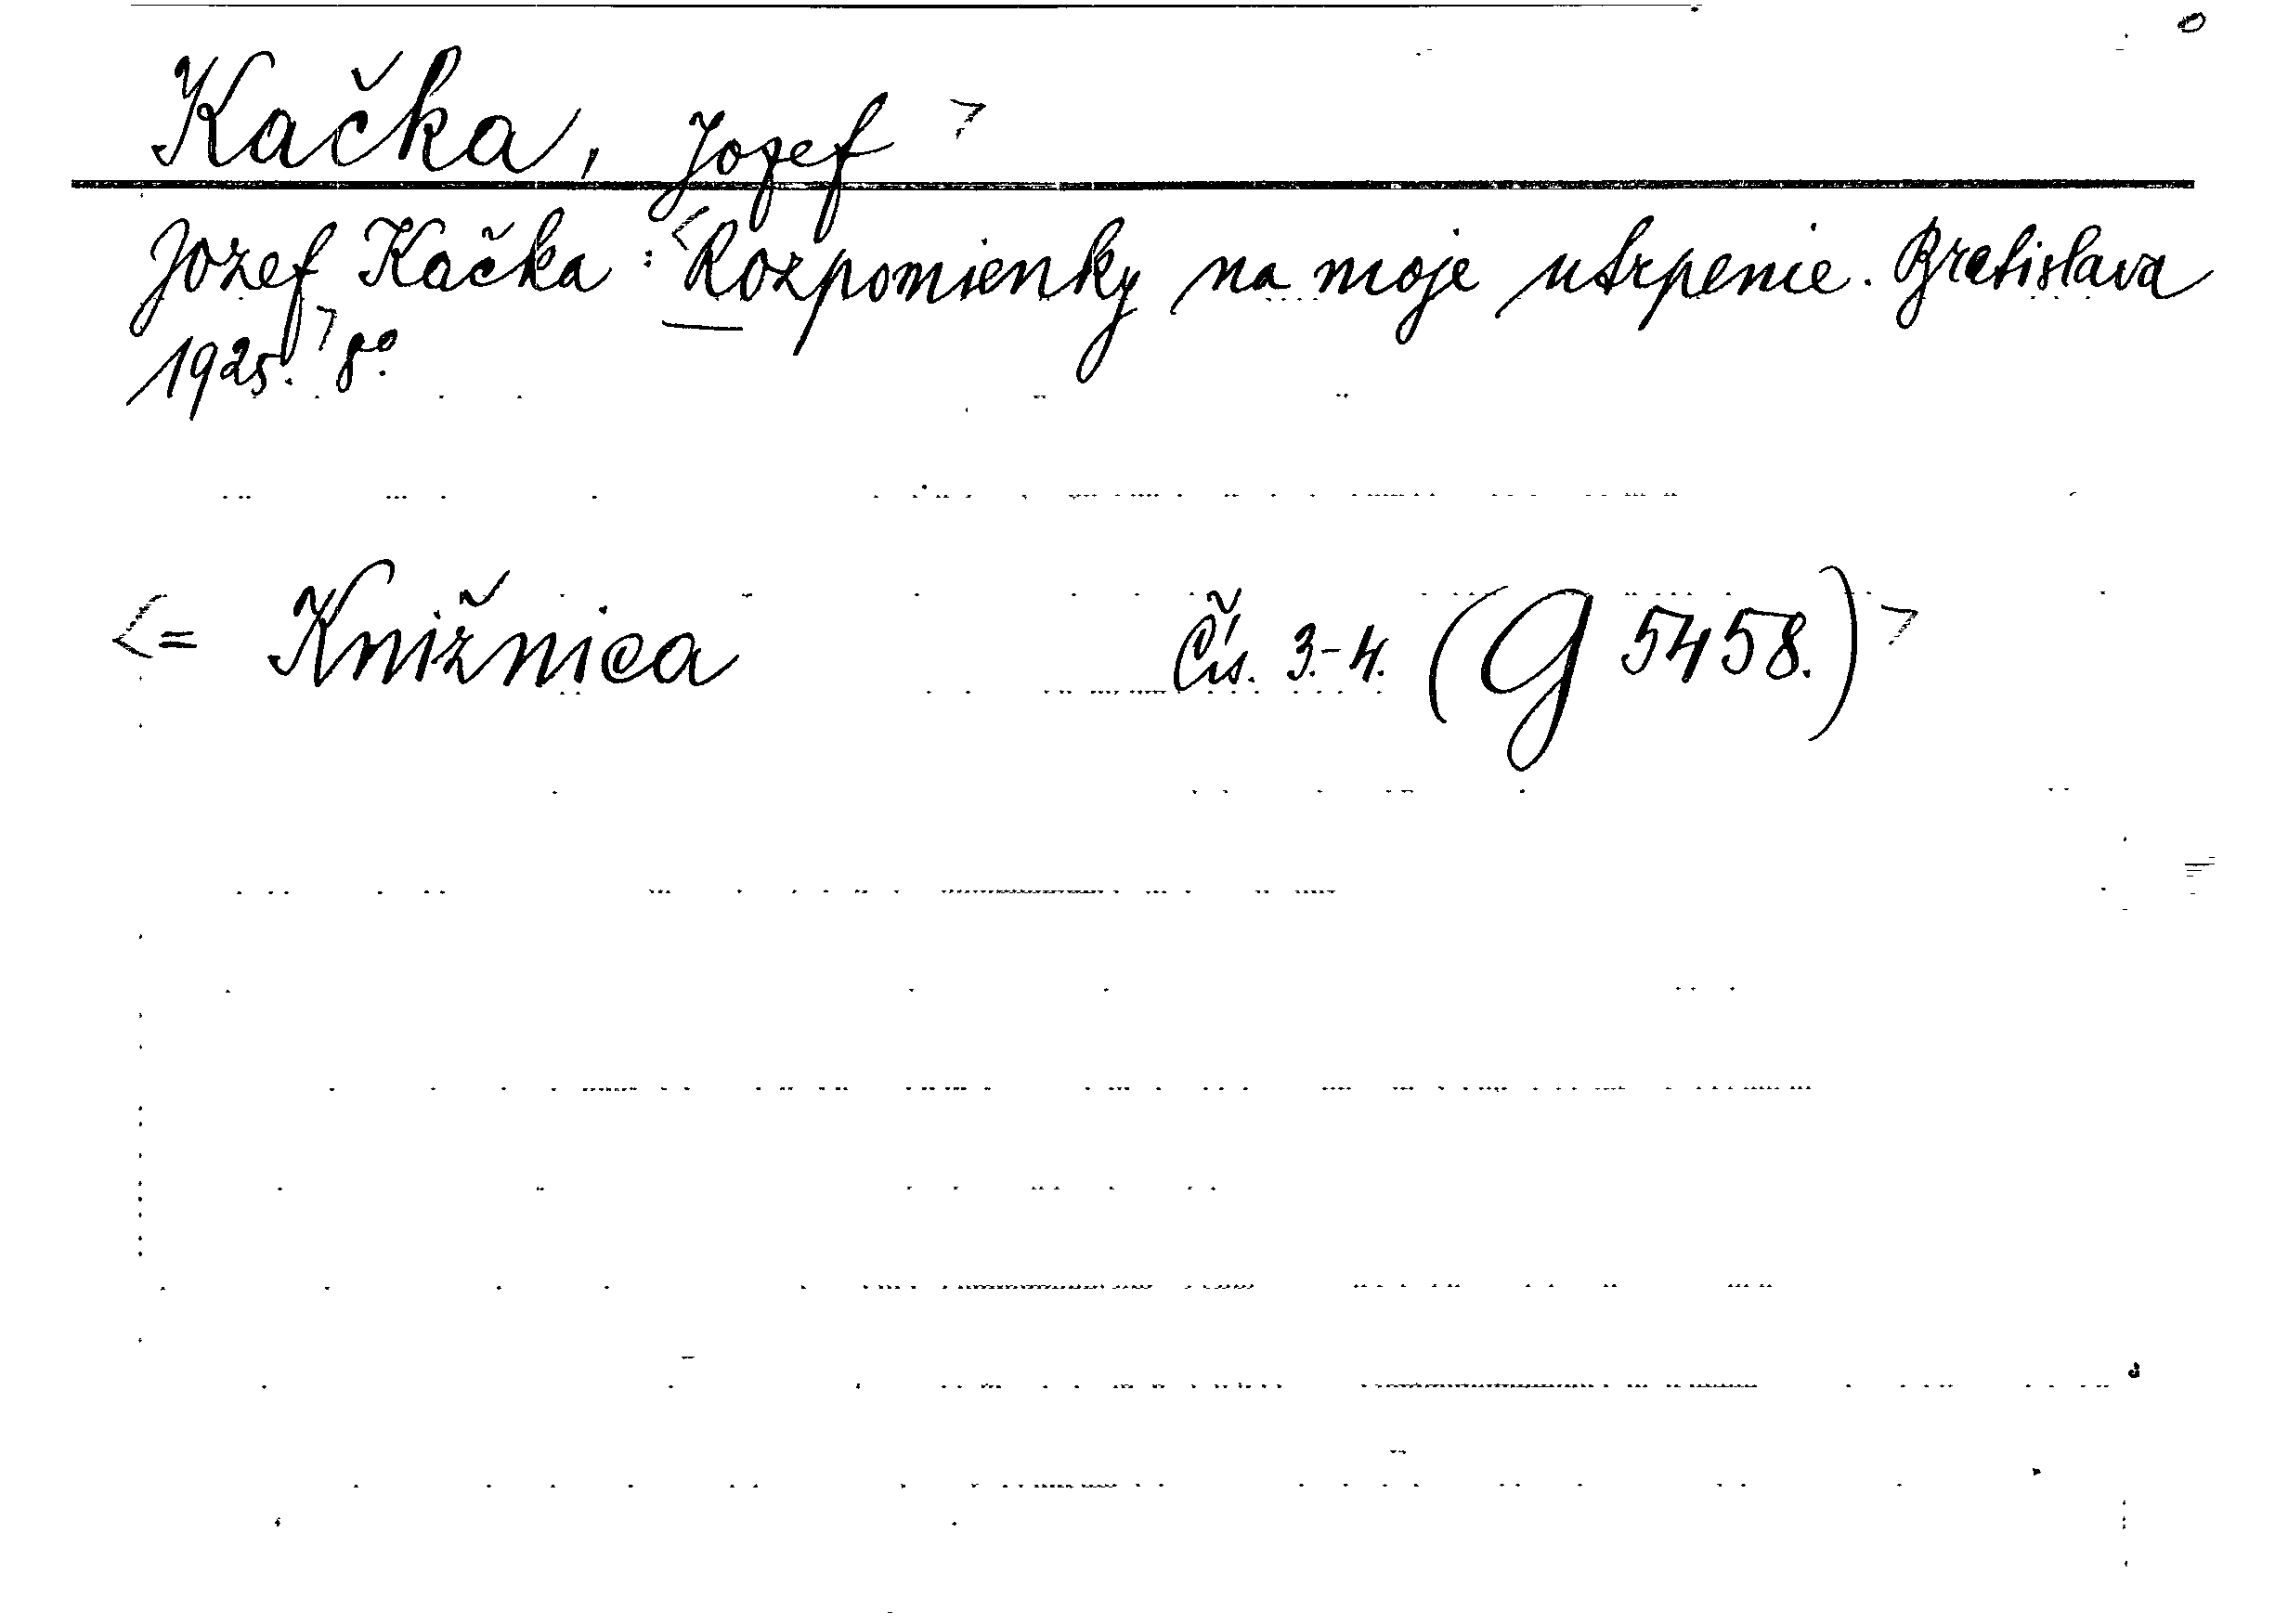 Kačka, Jozef >
Jozef Kačka : <Rozpomienky na moje utrpenie. Bratislava
1925.> 8°.
<= Knižnica Čís. 3.-4. (G 5458.)>